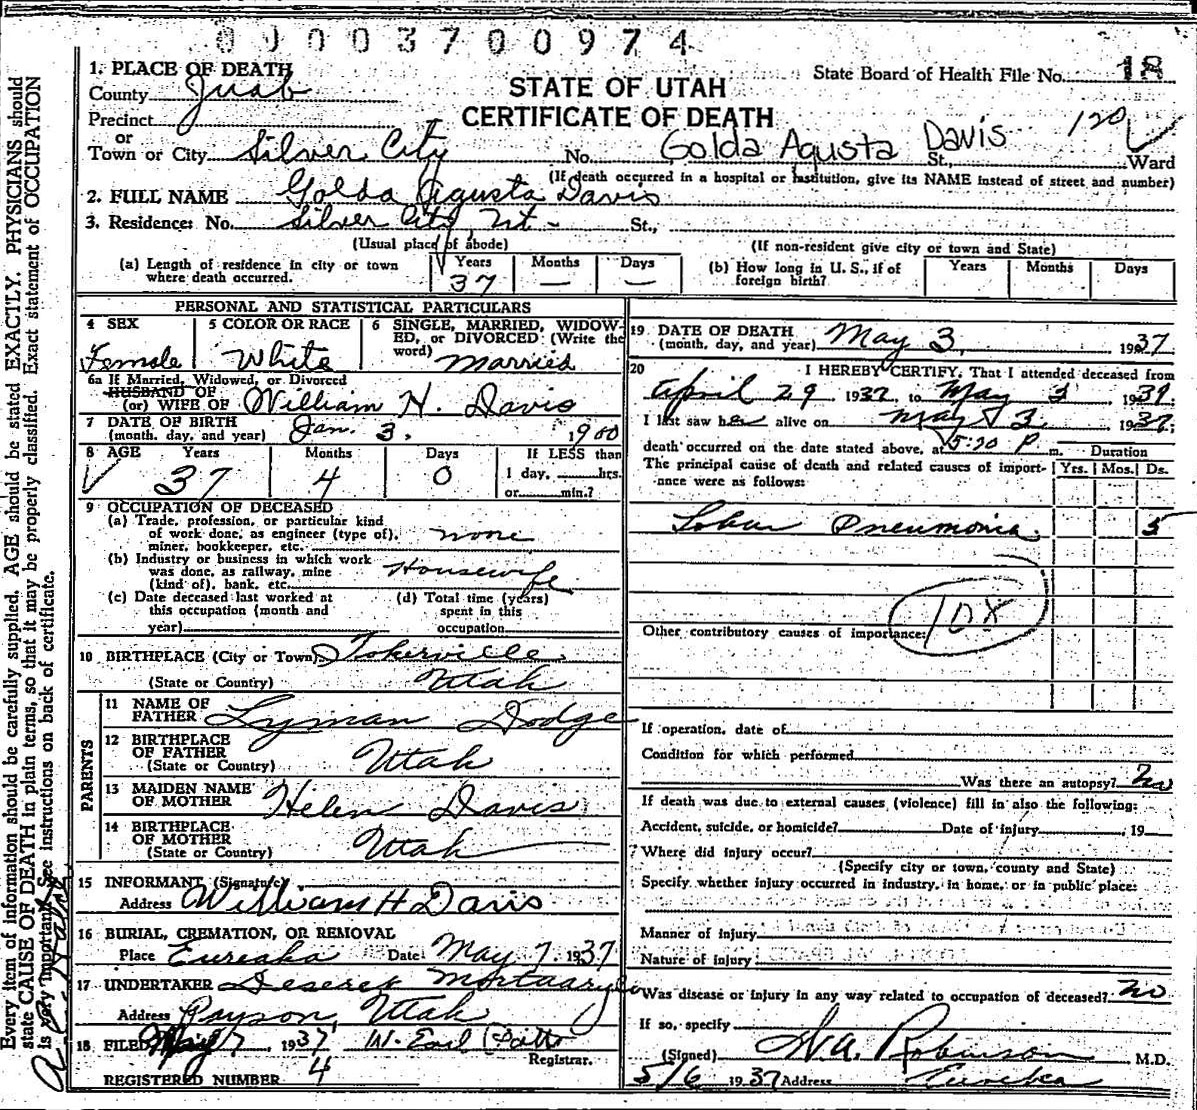 0 J 0 0 3 7 0 0 9 7 4
1. PLACE OF DEATH
County Juab
Precinct
or
Town or City Silver City
STATE OF UTAH
CERTIFICATE OF DEATH
State Board of Health File No. 18
No. Golda Agusta Davis St., Ward
120
(If death occurred in a hospital or institution, give its NAME instead of street and number)
2. FULL NAME Golda Agusta Davis
3. Residence: No. Silver City, Ut - St.,
(Usual place of abode)
(If non-resident give city or town and State)
(a) Length of residence in city or town where death occurred.
Years Months Days
37 — —
(b) How long in U. S., if of foreign birth?
Years Months Days
PERSONAL AND STATISTICAL PARTICULARS
4 SEX
Female
5 COLOR OR RACE
White
6 SINGLE, MARRIED, WIDOW-
ED, or DIVORCED: (Write the
word) married
6a If Married, Widowed, or Divorced
HUSBAND OF
(or) WIFE OF William H. Davis
7 DATE OF BIRTH
(month, day, and year) Jan. 3, 1900
8 AGE Years Months Days If LESS than
37 4 0 1 day, hrs.
or min.?
9 OCCUPATION OF DECEASED
(a) Trade, profession, or particular kind
of work done, as engineer (type of),
miner, bookkeeper, etc. none
(b) Industry or business in which work
was done, as railway, mine
(kind of), bank, etc. Housewife
(c) Date deceased last worked at
this occupation (month and
year)
(d) Total time (years)
spent in this
occupation
10 BIRTHPLACE (City or Town) Tokerville
(State or Country) Utah
PARENTS
11 NAME OF
FATHER Lyman Dodge
12 BIRTHPLACE
OF FATHER Utah
(State or Country)
13 MAIDEN NAME
OF MOTHER Helen Davis
14 BIRTHPLACE
OF MOTHER Utah
(State or Country)
15 INFORMANT (Signature)
Address William H Davis
16 BURIAL, CREMATION, OR REMOVAL
Place Eureaka Date May 7, 1937
17 UNDERTAKER Deseret Mortuary
Address Payson, Utah
18 FILED 7, 1937 W. Earl
Registrar.
REGISTERED NUMBER 4
19 DATE OF DEATH
(month, day, and year) May 3, 1937
20 I HEREBY CERTIFY, That I attended deceased from
April 29, 1937, to May 3, 1937,
I last saw her alive on May 3, 1937;
death occurred on the date stated above, at 5:20 P m.
Duration
The principal cause of death and related causes of import-
ance were as follows:
Yrs. Mos. Ds.
Lobar Pneumonia. 5
108
Other contributory causes of importance:
If operation, date of
Condition for which performed
Was there an autopsy? No
If death was due to external causes (violence) fill in also the following:
Accident, suicide, or homicide? Date of injury , 19
Where did injury occur?
(Specify city or town, county and State)
Specify whether injury occurred in industry, in home, or in public place:
Manner of injury
Nature of injury
Was disease or injury in any way related to occupation of deceased? No
If so, specify
(Signed) Robinson M.D.
5/6 1937 Address Eureka
Every item of information should be carefully supplied. AGE should be stated EXACTLY. PHYSICIANS should
state CAUSE OF DEATH in plain terms, so that it may be properly classified. Exact statement of OCCUPATION
is very important. See instructions on back of certificate.